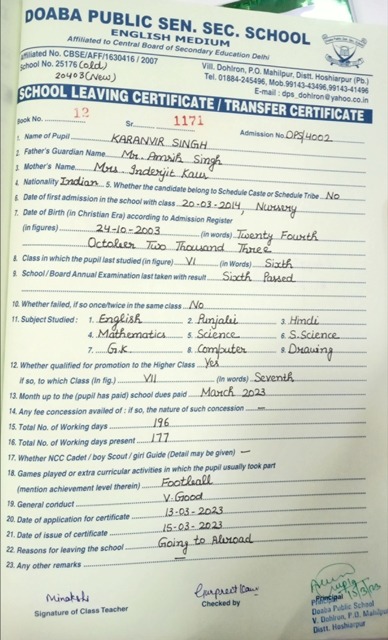 DOABA PUBLIC SEN. SEC. SCHOOL
ENGLISH MEDIUM
Affiliated to Central Board of Secondary Education Delhi
Affiliated No. CBSE/AFF/1630416 / 2007
School No. 25176 (old)
20403 (New)
Vill. Dohlron, P.O. Mahilpur, Distt. Hoshiarpur (Pb.)
Tel. 01884-245496, Mob.99143-43496,99143-41496
E-mail : dps_dohlron@yahoo.co.in
SCHOOL LEAVING CERTIFICATE / TRANSFER CERTIFICATE
Book No. 12 Sr. 1171 Admission No. DPS/4002
1. Name of Pupil KARANVIR SINGH
2. Father's Guardian Name Mr. Amrik Singh
3. Mother's Name Mrs. Inderjit Kaur
4. Nationality Indian 5. Whether the candidate belong to Schedule Caste or Schedule Tribe No
6. Date of first admission in the school with class 20-03-2014, Nursery
7. Date of Birth (in Christian Era) according to Admission Register
(in figures) 24-10-2003 (in words) Twenty Fourth
October Two Thousand Three
8. Class in which the pupil last studied (in figure) VI (in Words) Sixth
9. School / Board Annual Examination last taken with result Sixth Passed
10. Whether failed, if so once/twice in the same class No
11. Subject Studied : 1. English 2. Punjabi 3. Hindi
4. Mathematics 5. Science 6. S.Science
7. G.K 8. Computer 9. Drawing
12. Whether qualified for promotion to the Higher Class Yes
If so, to which Class (In fig.) VII (in words) Seventh
13. Month up to the (pupil has paid) school dues paid March 2023
14. Any fee concession availed of : if so, the nature of such concession —
15. Total No. of Working days 196
16. Total No. of Working days present 177
17. Whether NCC Cadet / boy Scout / girl Guide (Detail may be given) —
18. Games played or extra curricular activities in which the pupil usually took part
(mention achievement level therein) Football
19. General conduct V. Good
20. Date of application for certificate 13-03-2023
21. Date of issue of certificate 15-03-2023
22. Reasons for leaving the school Going to Abroad
23. Any other remarks —
Minakshi
Signature of Class Teacher
Gurpreet Kaur
Checked by
Principal
Doaba Public School
V. Dohlron, P.O. Mahilpur
Distt. Hoshiarpur